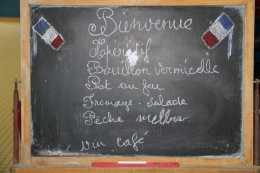 Bienvenue
Apéritif
Bouillon vermicelle
Pot au feu
Fromage - Salade
Pêche melba
vin café